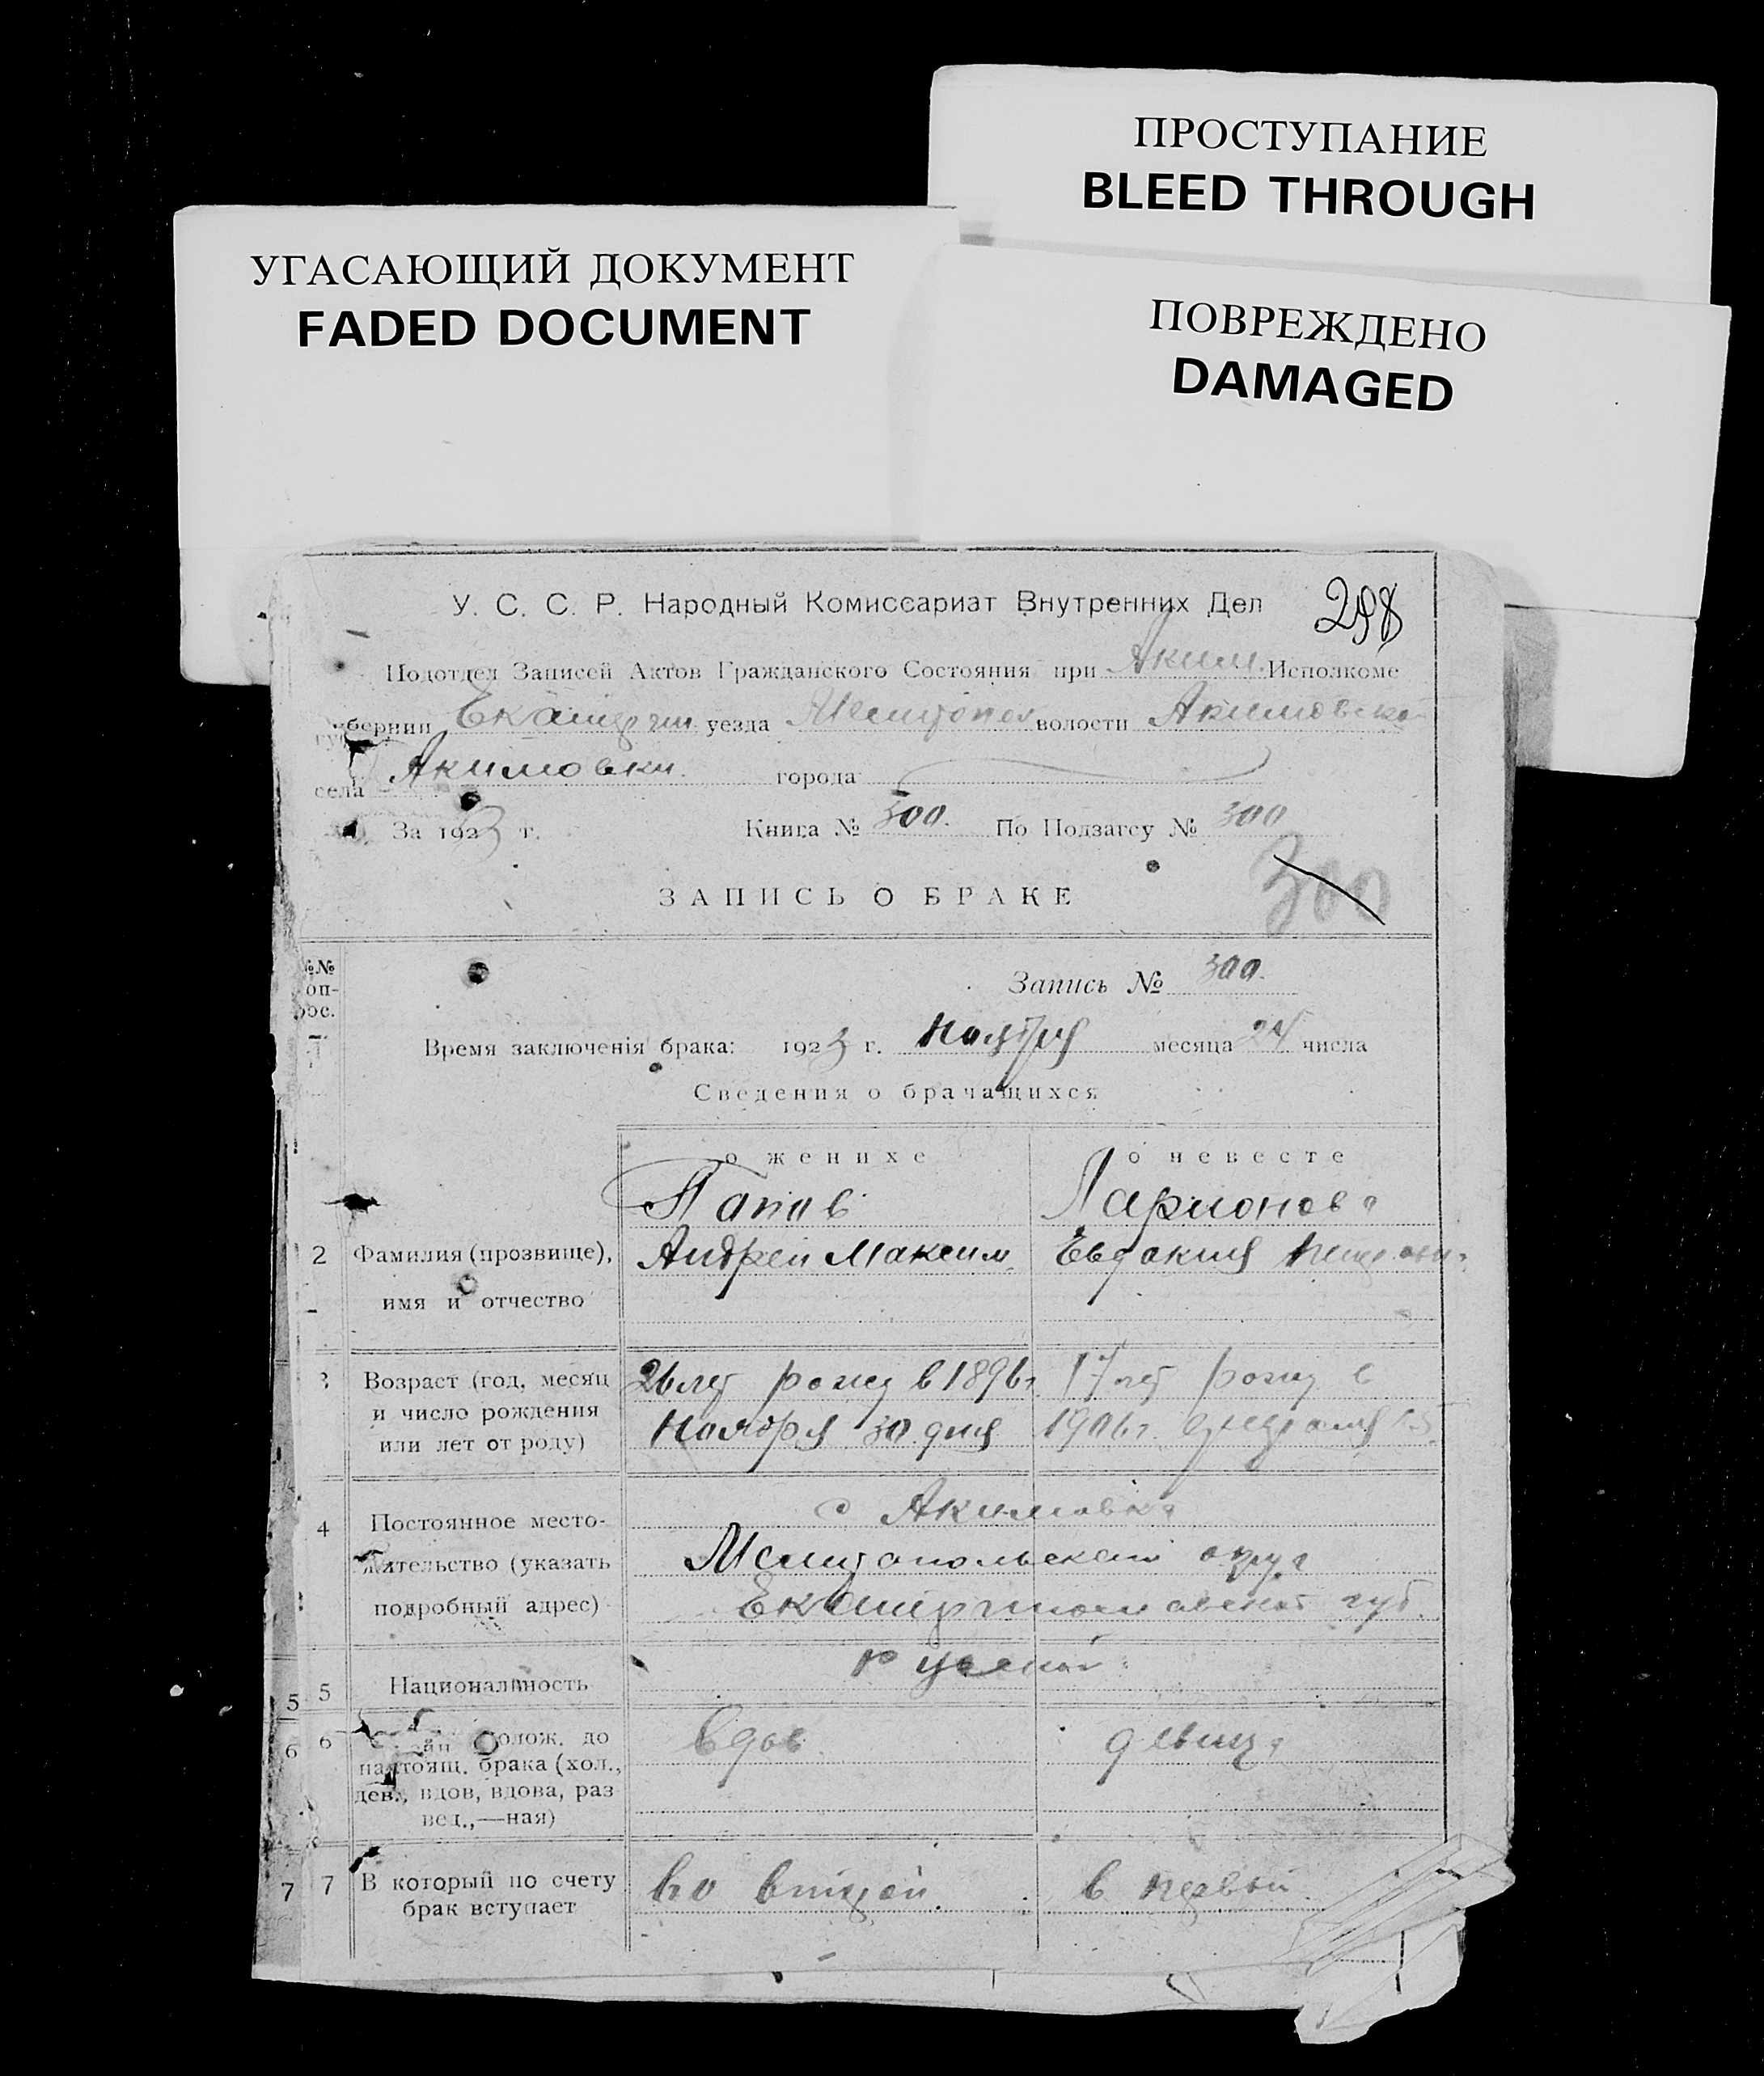 ПРОСТУПАНИЕ
BLEED THROUGH
УГАСАЮЩИЙ ДОКУМЕНТ
FADED DOCUMENT
ПОВРЕЖДЕНО
DAMAGED
У. С. С. Р. Народный Комиссариат Внутренних Дел 298
Подотдел Записей Актов Гражданского Состояния при Аким. Исполкоме
губернии Екатерин уезда Мелитопол волости Акимовско
села Акимовки города
За 1923 г. Книга № 300. По Подзагсу № 300
300
ЗАПИСЬ О БРАКЕ
№№
Запись № 300.
Время заключенія брака: 1923 г. Ноября месяца 24 числа
Сведения о брачащихся
о женихе о невесте
Попов Ларионова
2 Фамилия (прозвище), Андрей Максим Евдокия
имя и отчество
3 Возраст (год, месяц 26 лет рожд в 1896 г. 17 лет рожд в
и число рождения Ноября 30 дня 1906 г.
или лет от роду)
с Акимовка
4 Постоянное место-
жительство (указать Мелитопольского округа
подробный адрес) Екатеринославской губ.
5 5 Национальность русской
6 6 полож. до вдов. девица
настоящ. брака (хол.,
дев., вдов, вдова, раз
вед.,—ная)
7 7 В который по счету во второй в первый
брак вступает